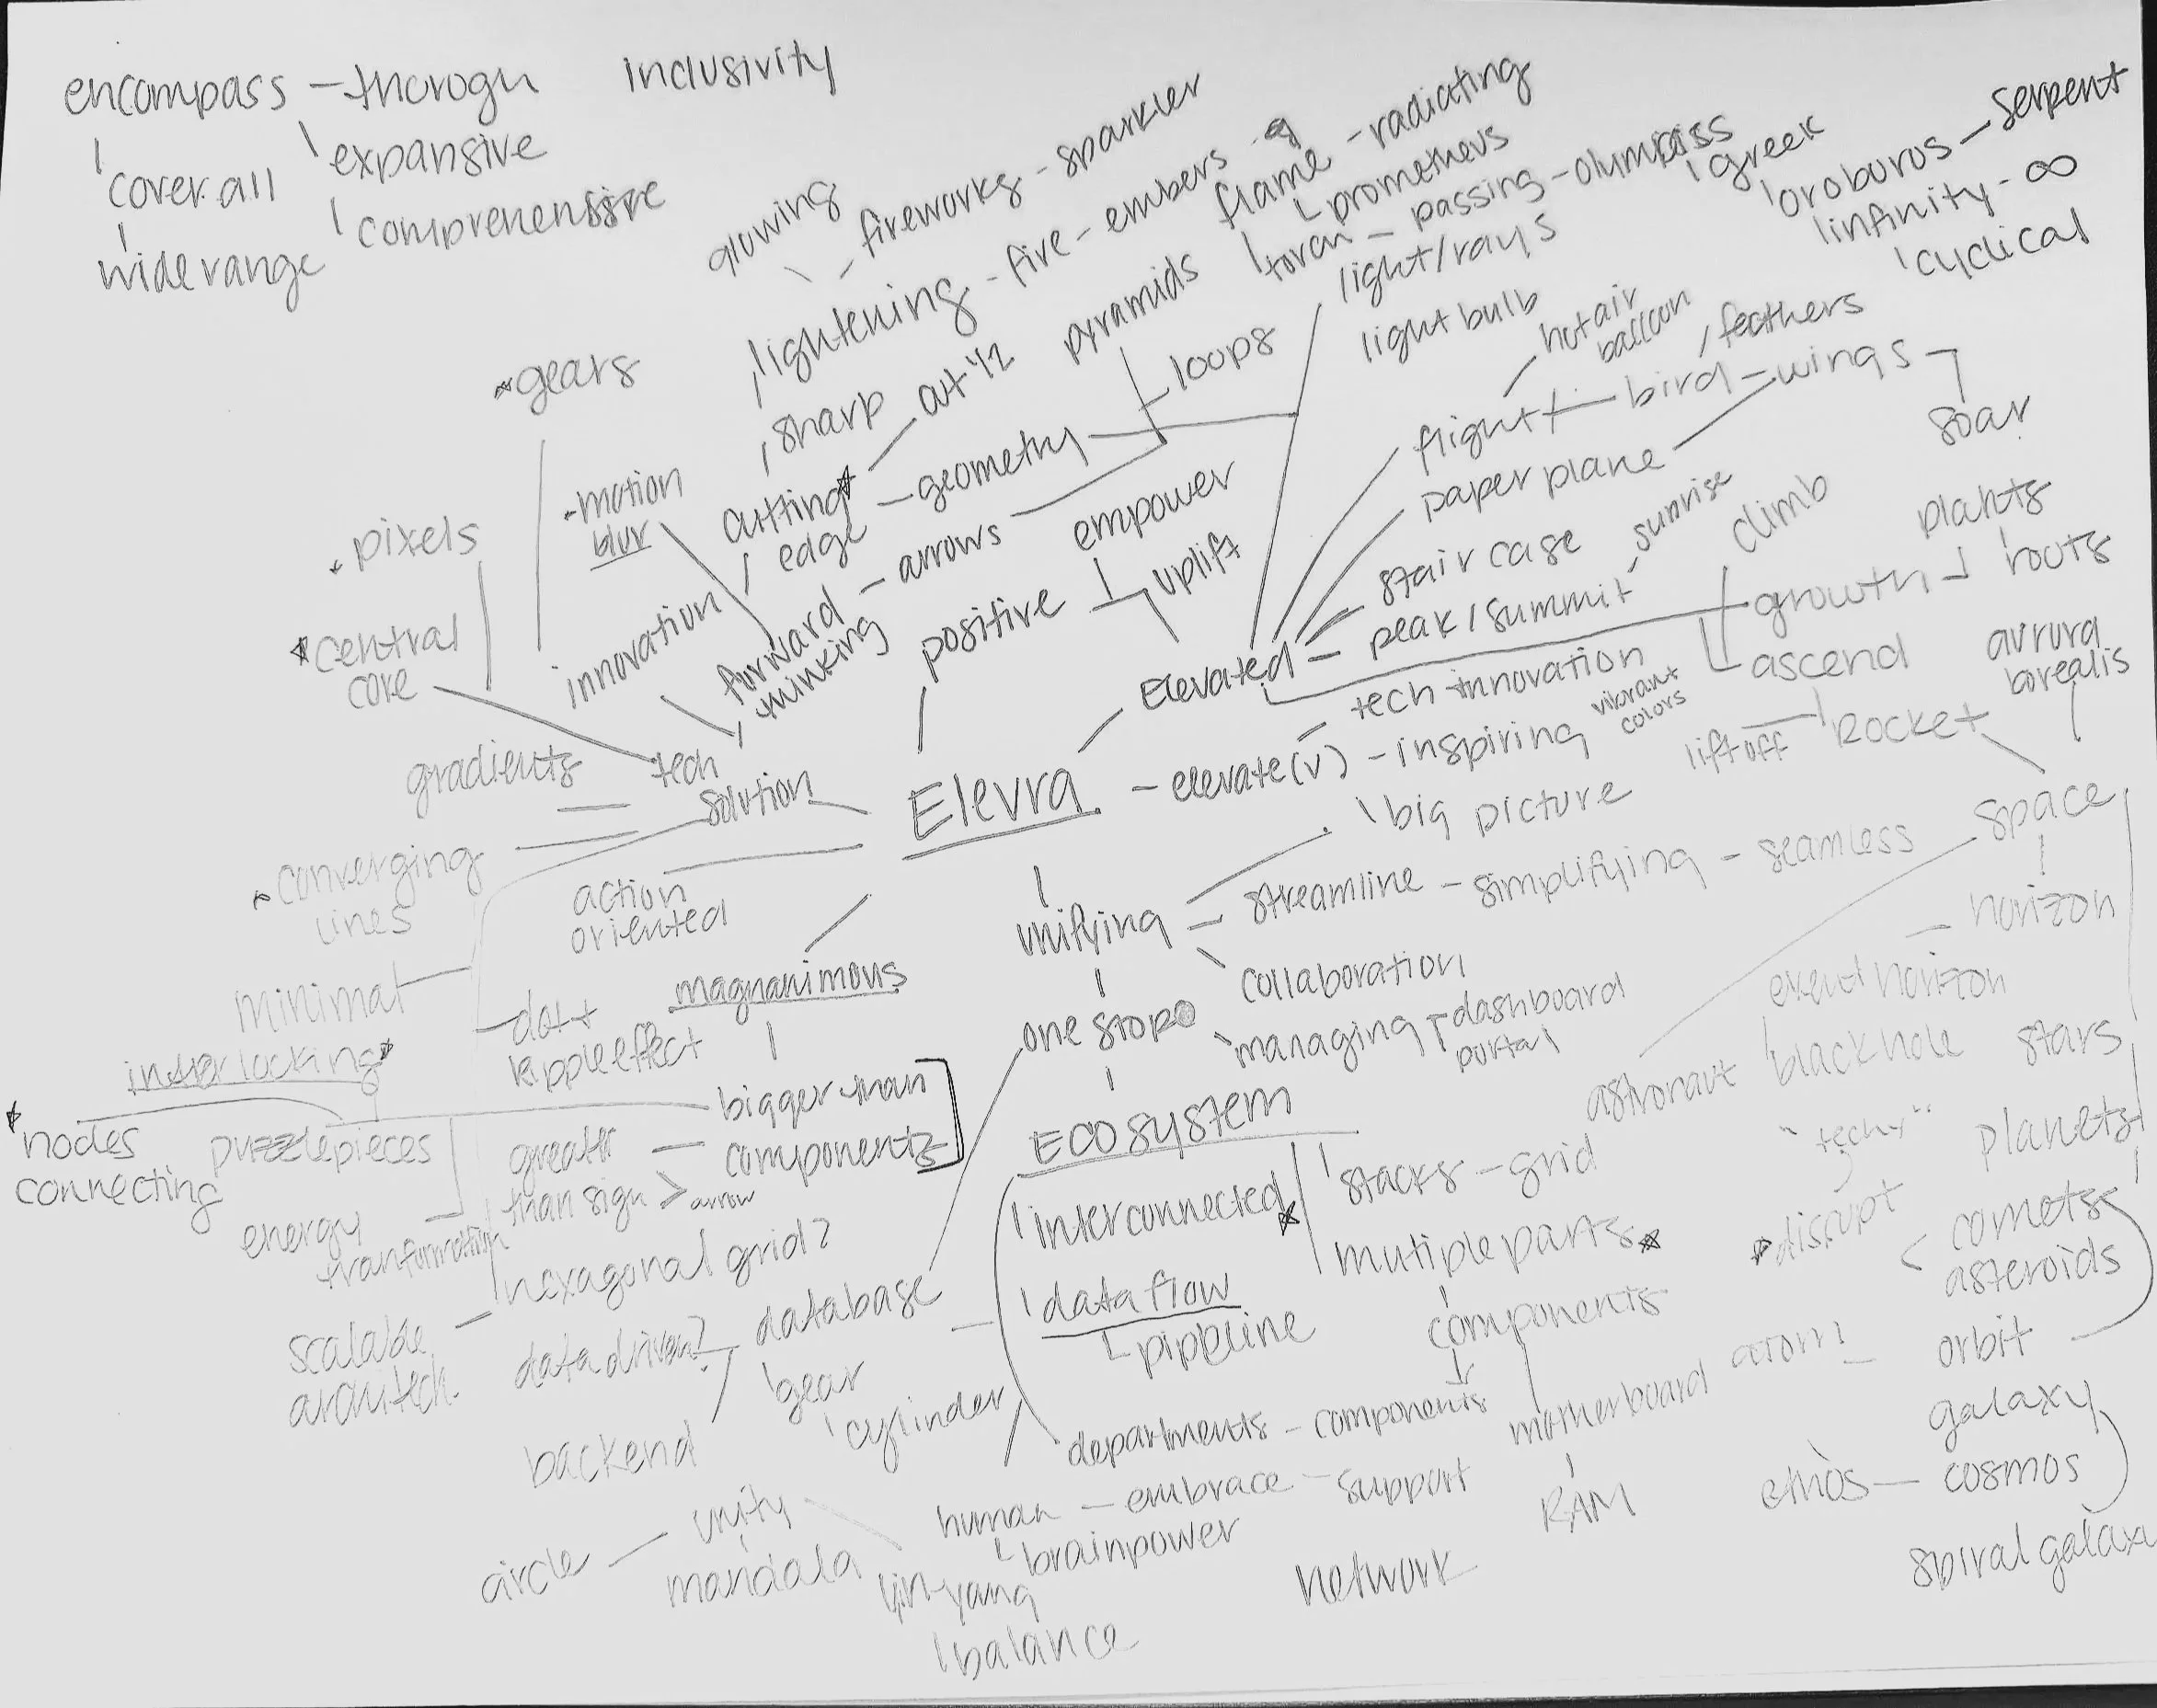 encompass - thorogh
inclusivity
coverall
expansive
wide range
comprehensive
glowing
- fireworks - sparkler
lightening - fire - embers
flame - radiating
prometheus
torch - passing - olympics
greek
oroborus - serpent
infinity - ∞
cyclical
light/rays
light bulb
pyramids
loops
sharp
cut 1/2
gears
motion
blur
cutting
edge
- geometry
pixels
central
core
innovation
forward
thinking
- arrows
empower
positive
uplift
hot air
balloon
feathers
flight
bird - wings
soar
paper plane
stair case
sunrise
climb
plants
roots
growth
peak / summit
Elevated
ascend
aurora
borealis
tech innovation
vibrant
colors
lift off
Rocket
gradients
tech
solution
Elevra
- elevate (v) - inspiring
big picture
space
converging
lines
action
oriented
unifying
streamline - simplifying - seamless
horizon
minimal
magnanimous
collaboration
event horizon
dot +
ripple effect
one stop
managing
dashboard
portal
astronaut
blackhole
stars
interlocking
nodes
connecting
puzzle pieces
bigger than
components
greater
than sign >
arrow
Ecosystem
stacks - grid
"techy"
planets
energy
tranformation
interconnected
multiple parts
disrupt
comets
asteroids
hexagonal grid?
scalable
architech.
data driven?
database
gear
cylinder
data flow
pippline
components
motherboard
atom
orbit
galaxy
backend
departments - components
RAM
ethos - cosmos
spiral galaxy
circle - unity
mandala
human - embrace - support
brainpower
yin-yang
balance
network